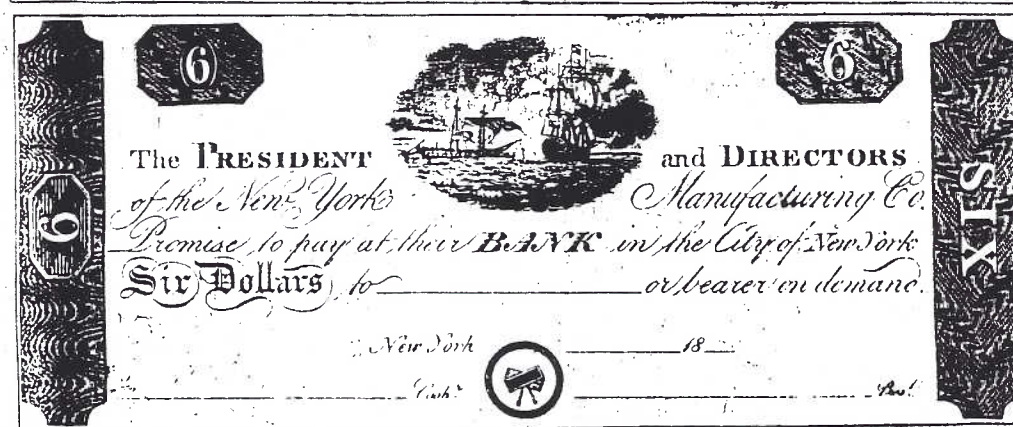 6 6
The PRESIDENT and DIRECTORS
of the New York Manufacturing Co.
Promise to pay at their BANK in the City of New York
Six Dollars to or bearer on demand.
New York 18
Cashr. Prest.
6
SIX